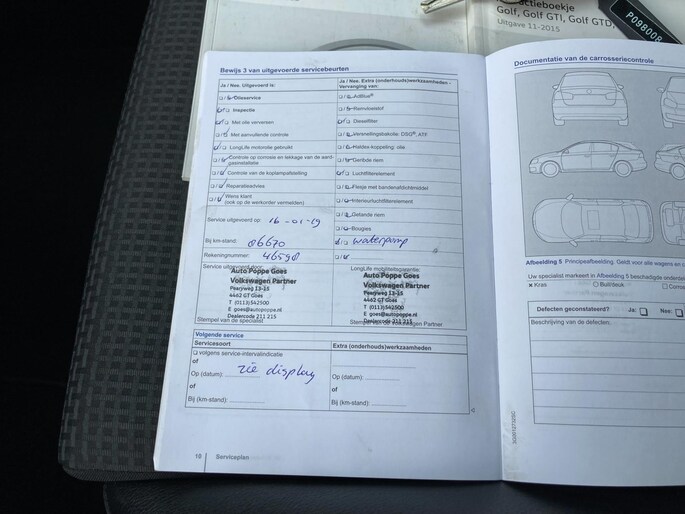 ctieboekje
Golf, Golf GTI, Golf GTD,
Uitgave 11-2015
P098008
Bewijs 3 van uitgevoerde servicebeurten
Ja / Nee. Uitgevoerd is:
Ja / Nee. Extra (onderhouds)werkzaamheden / Vervanging van:
Olieservice
AdBlue®
Inspectie
Remvloeistof
Met olie verversen
Dieselfilter
Met aanvullende controle
Versnellingsbakolie: DSG®, ATF
LongLife motorolie gebruikt
Haldex-koppeling: olie
Controle op corrosie en lekkage van de aard-
gasinstallatie
Geribde riem
Controle van de koplampafstelling
Luchtfilterelement
Reparatieadvies
Flesje met bandenafdichtmiddel
Wens klant
(ook op de werkorder vermelden)
Interieurluchtfilterelement
Getande riem
Service uitgevoerd op: 16-01-19
Bougies
Bij km-stand: 86670
waterpomp
Rekeningnummer: 46598
Service uitgevoerd door:
LongLife mobiliteitsgarantie:
Auto Poppe Goes
Volkswagen Partner
Pearyweg 13-15
4462 GT Goes
T (0113)542500
E goes@autopoppe.nl
Dealercode 211 215
Stempel van de specialist
Auto Poppe Goes
Volkswagen Partner
Pearyweg 13-15
4462 GT Goes
T (0113)542500
E goes@autopoppe.nl
Dealercode 211 215
Stempel van de Volkswagen Partner
Volgende service
Servicesoort
Extra (onderhouds)werkzaamheden
volgens service-intervalindicatie
of
Op (datum): zie display
Op (datum):
of
of
Bij (km-stand):
Bij (km-stand):
18 Serviceplan
Documentatie van de carrosseriecontrole
Afbeelding 5 Principeafbeelding. Geldt voor alle wagens en c
Uw specialist markeert in Afbeelding 5 beschadigde onderdel
Kras
Buil/deuk
Corros
Defecten geconstateerd? Ja: Nee:
Beschrijving van de defecten: